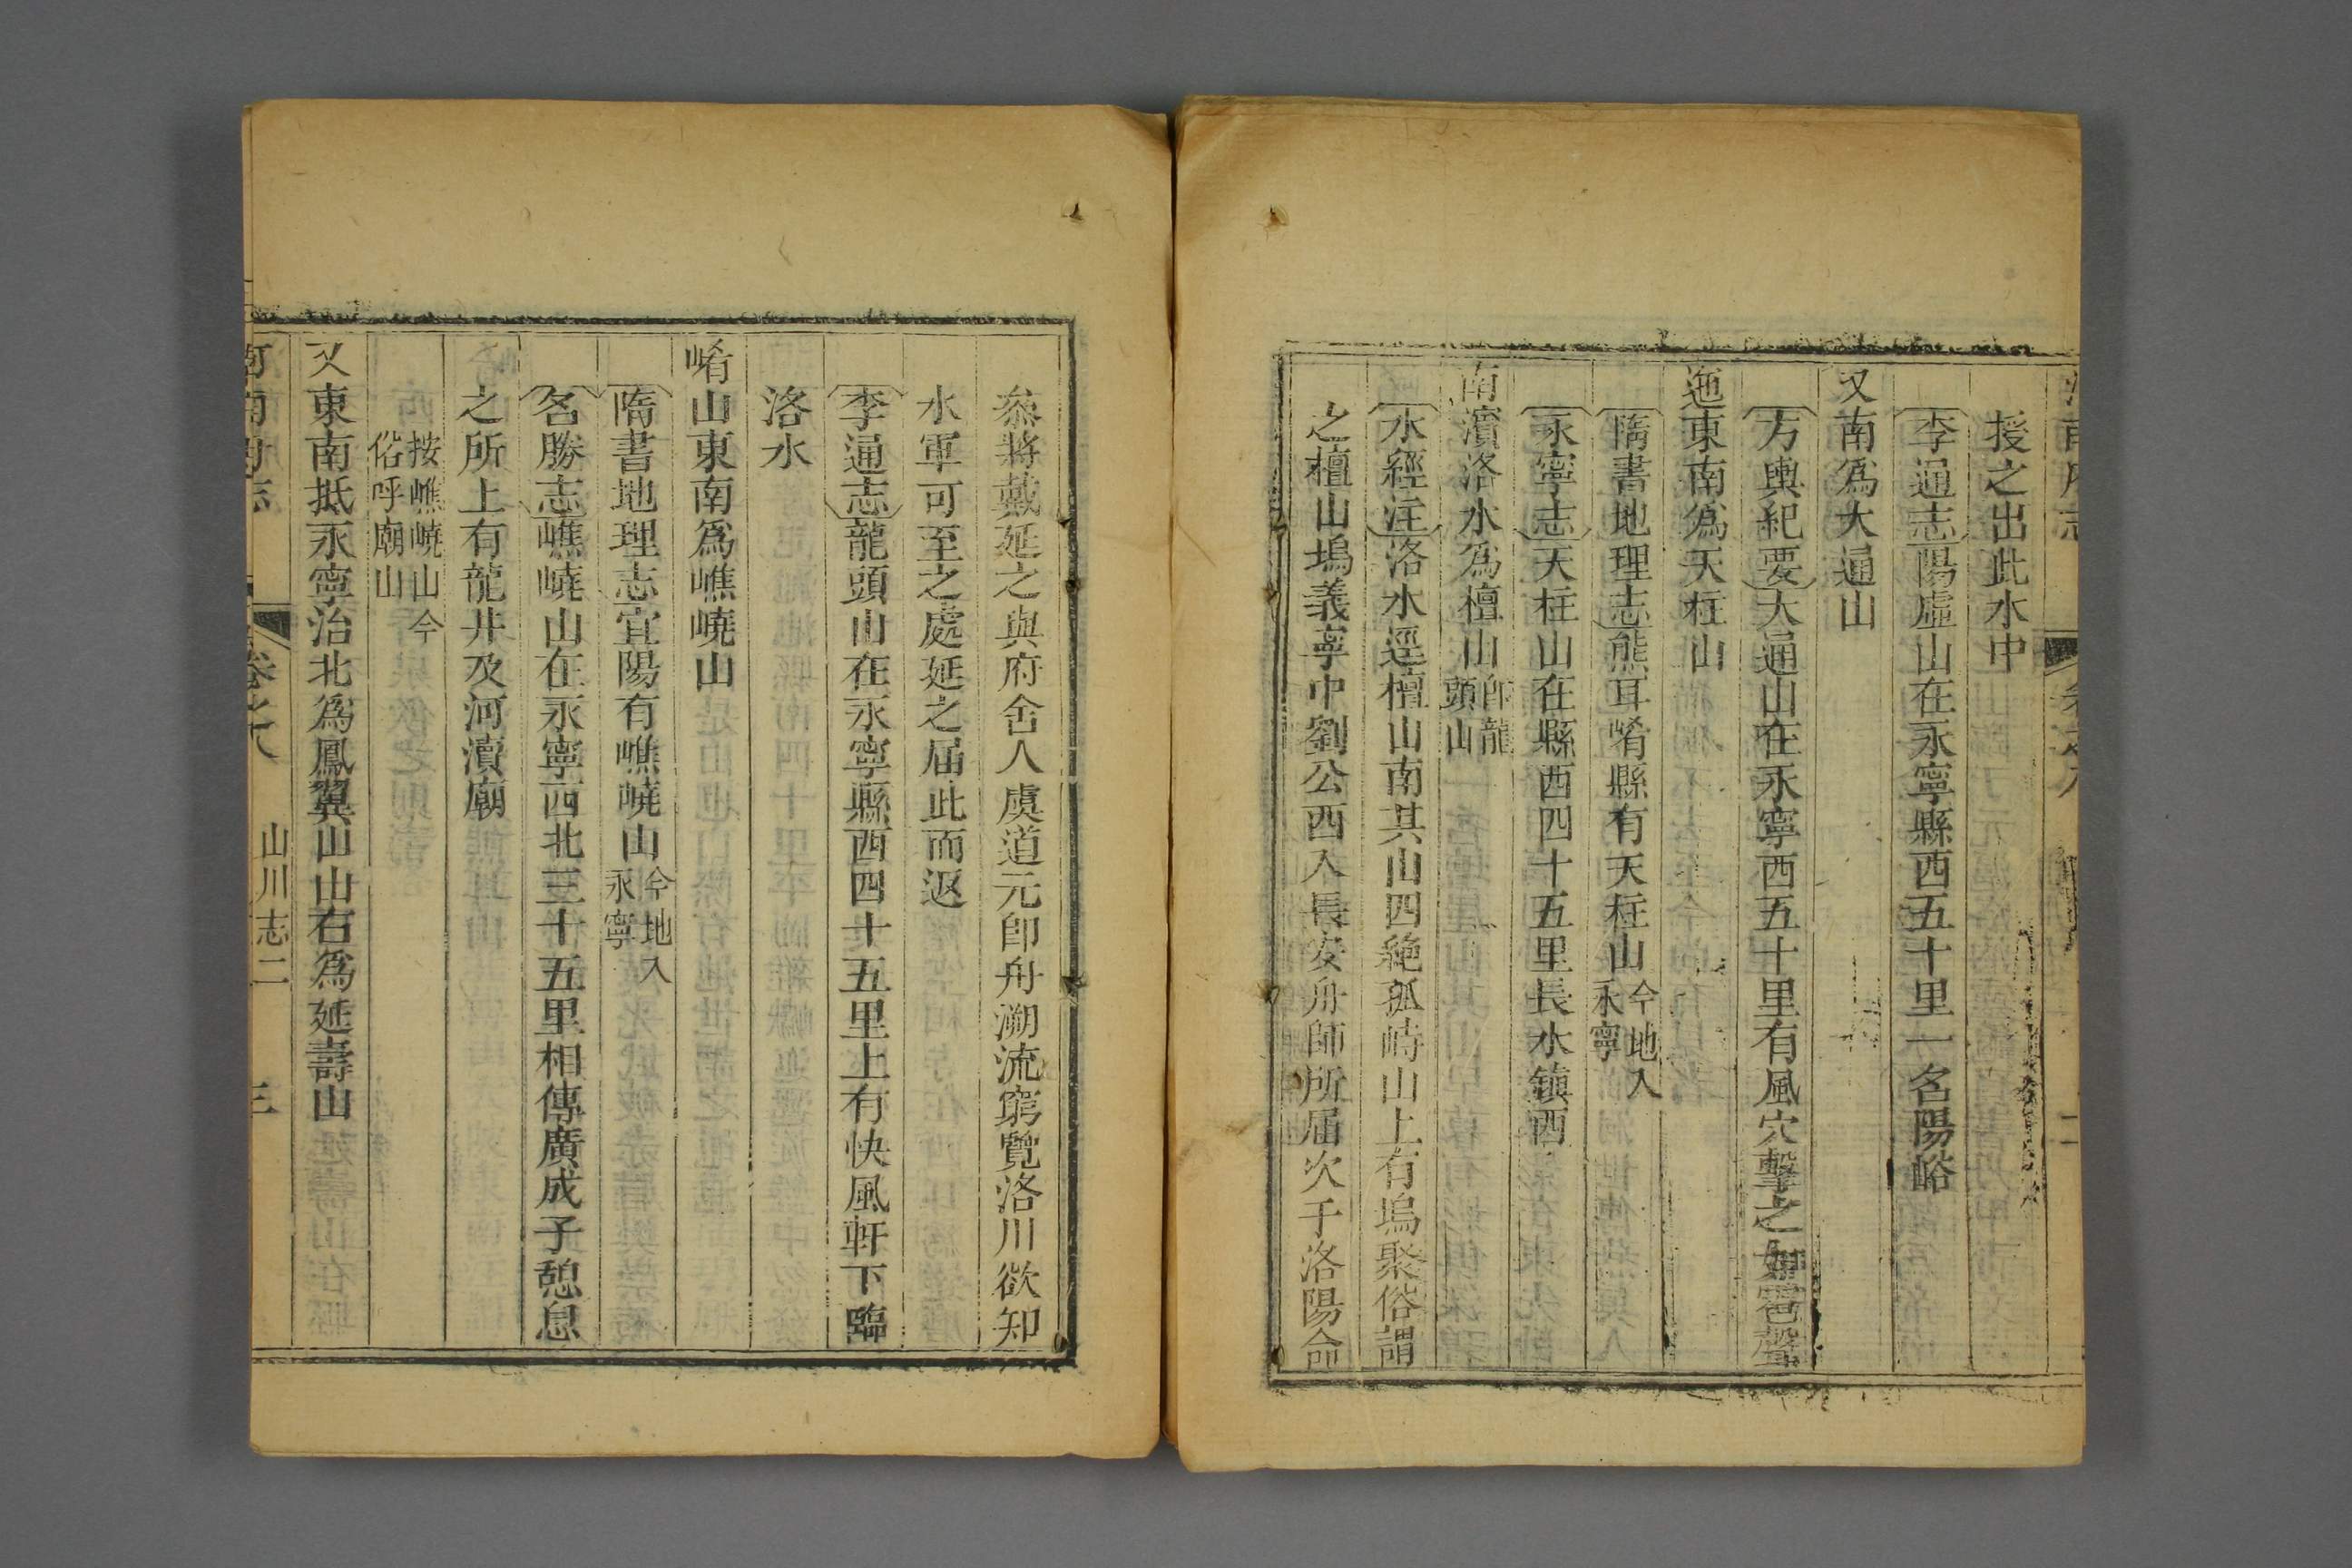 授之出此水中
李通志陽虛山在永寧縣西五十里一名陽峪
又南爲大通山
方輿紀要大通山在永寧西五十里有風穴擊之如雹聲
迤東南爲天柱山
隋書地理志熊耳崤縣有天柱山今地入永寧
永寧志天柱山在縣西四十五里長水鎮西
南濵洛水爲檀山卽龍頭山
水經注洛水逕檀山南其山四絶孤峙山上有塢聚俗謂
之檀山塢義寧中劉公西入長安舟師所屆次于洛陽命
叅將戴延之與府舍人虞道元卽舟溯流窮覽洛川欲知
水軍可至之處延之屆此而返
李通志龍頭山在永寧縣西四十五里上有快風軒下臨
洛水
崤山東南爲嶕嶢山
隋書地理志宜陽有嶕嶢山今地入永寧
名勝志嶕嶢山在永寧西北三十五里相傳廣成子憩息
之所上有龍井及河瀆廟
按嶕嶢山今俗呼廟山
又東南抵永寧治北爲鳳翼山山右爲延壽山
山川志二
三